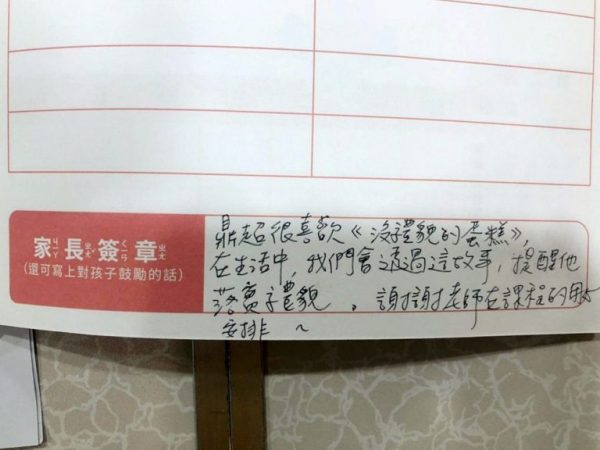 家長簽章
ㄐㄧㄚ ㄓㄤˇ ㄑㄧㄢ ㄓㄤ
(還可寫上對孩子鼓勵的話)
鼎超很喜歡《沒禮貌的蛋糕》,
在生活中,我們會透過這故事,提醒他
落實禮貌。謝謝老師在課程的用心
安排～